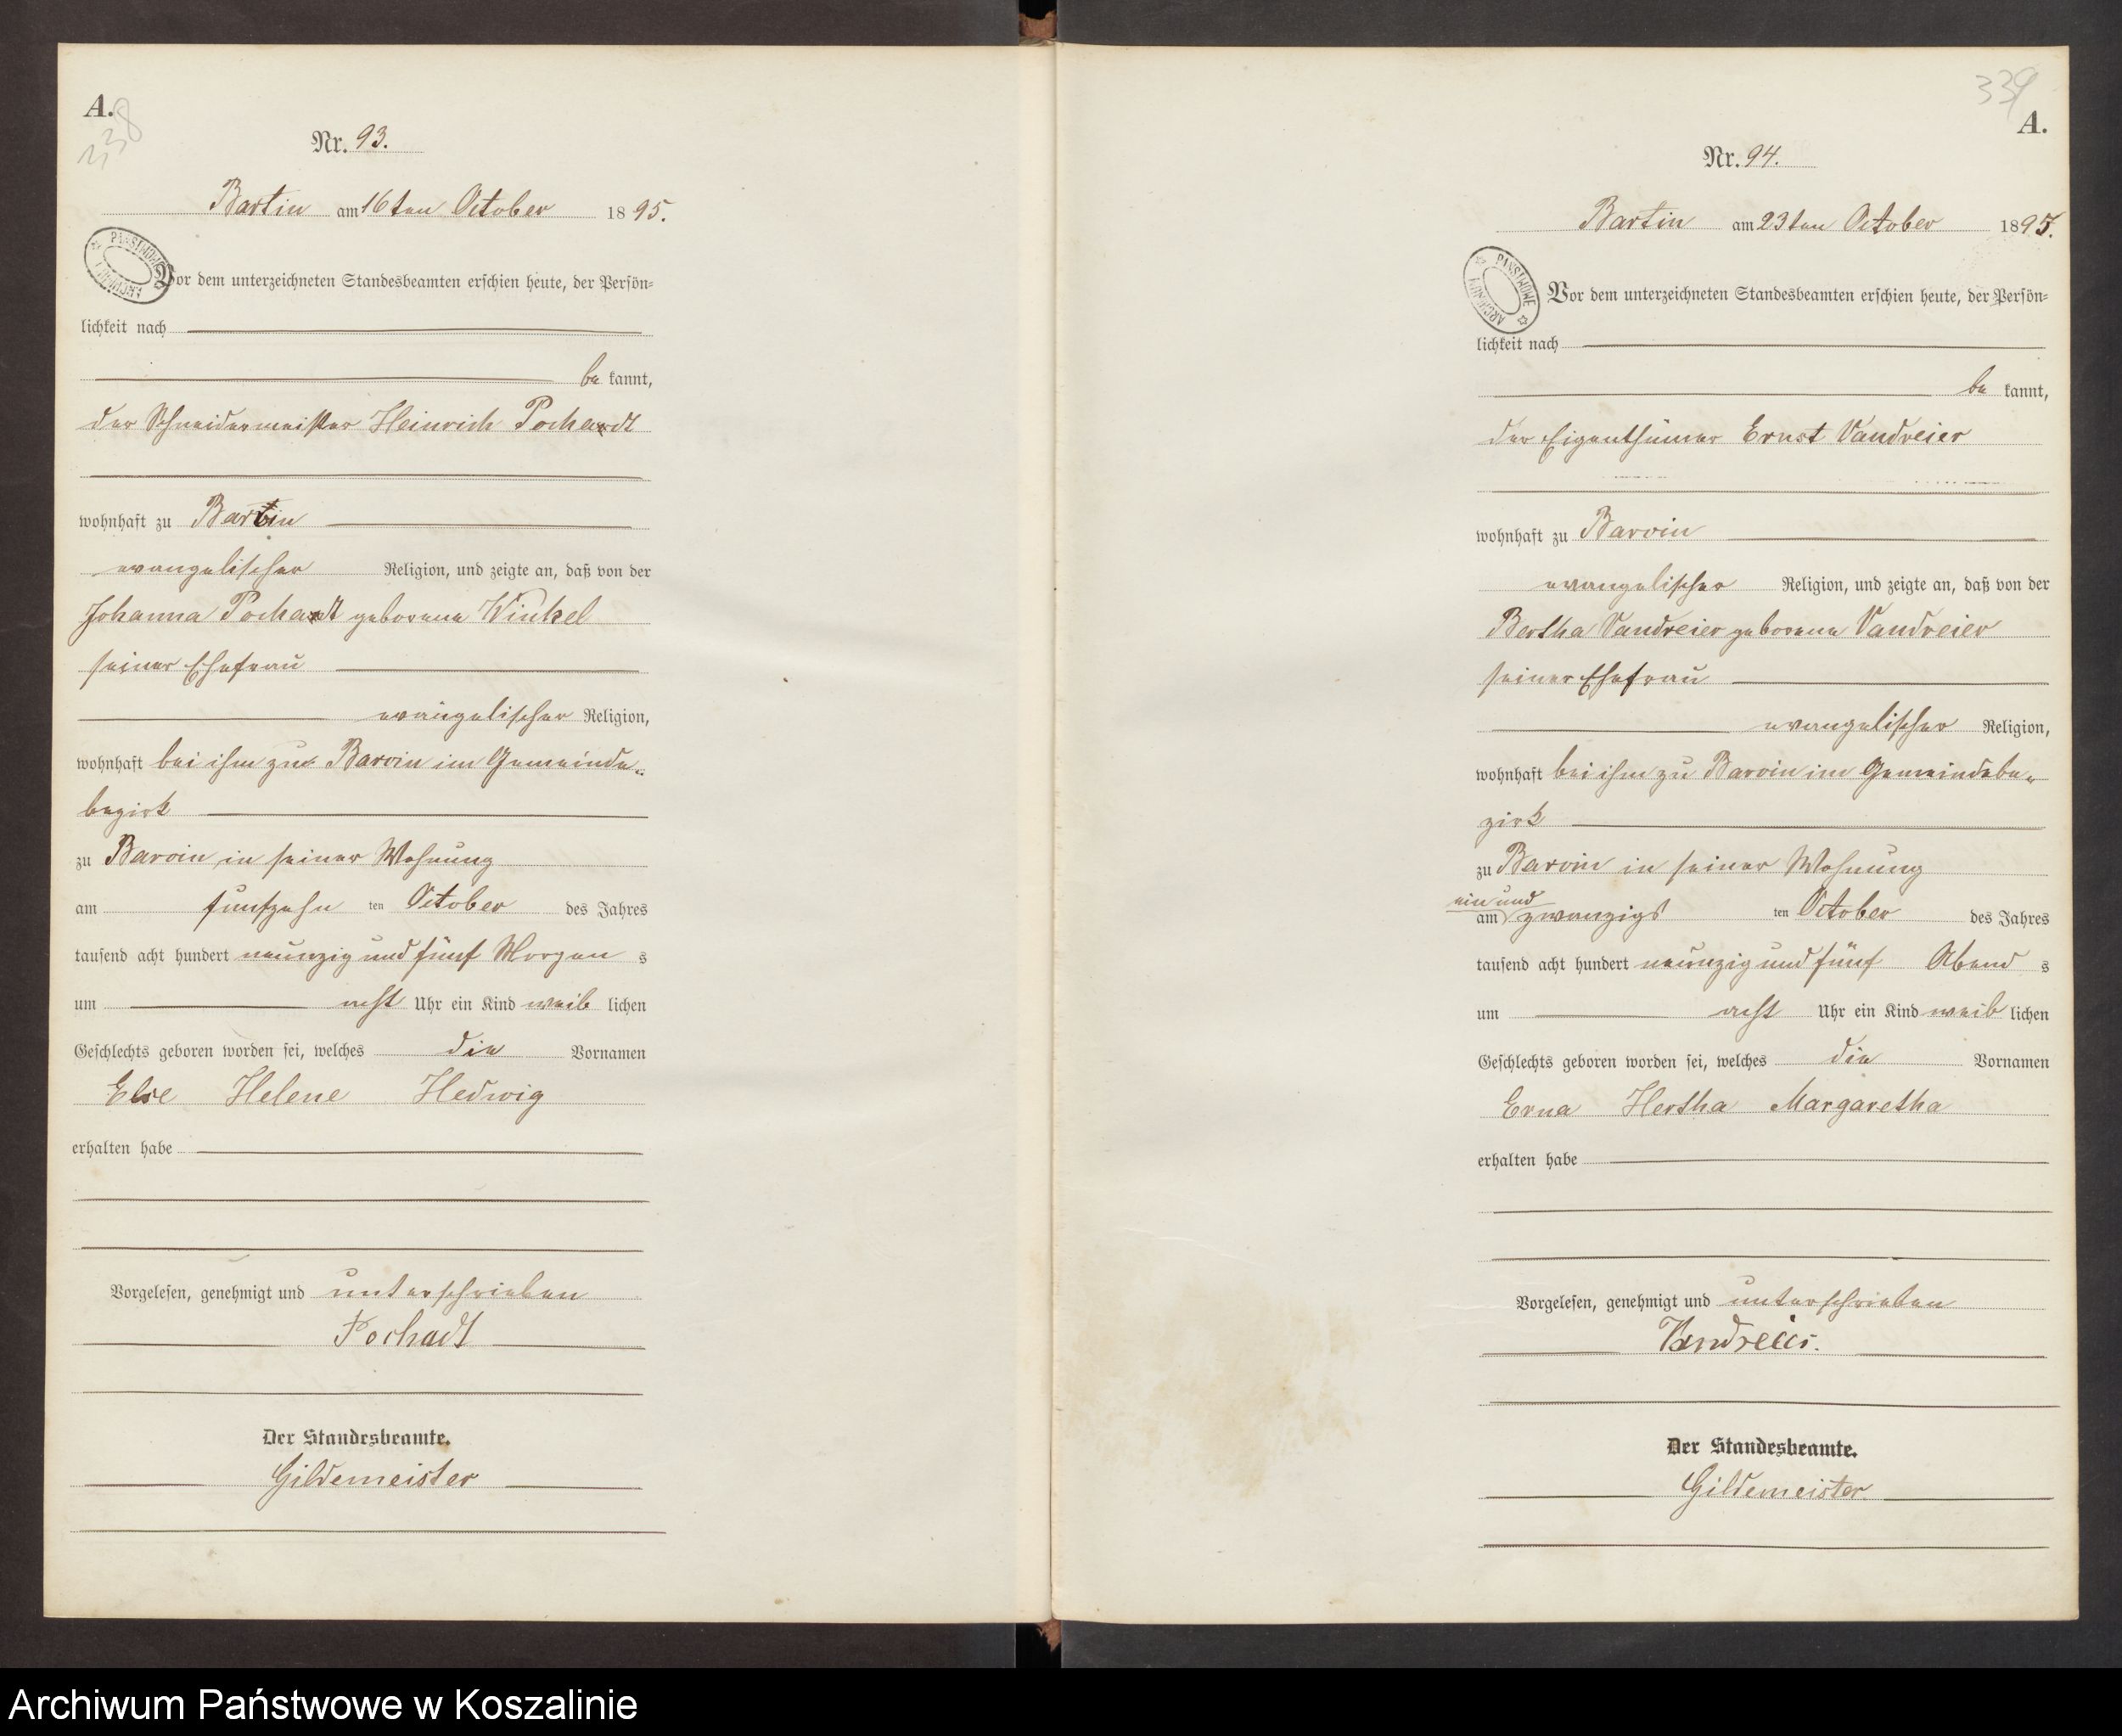 A.
338
Nr. 93.
Bartin am 16ten October 1895.
Vor dem unterzeichneten Standesbeamten erschien heute, der Persön=
lichkeit nach
be kannt,
der Schneidermeister Heinrich Pochardt
wohnhaft zu Bartin
evangelischer Religion, und zeigte an, daß von der
Johanna Pochardt geborene Winkel
seiner Ehefrau
evangelischer Religion,
wohnhaft bei ihm zu Barvin im Gemeinde=
bezirk
zu Barvin in seiner Wohnung
am fünfzehn ten October des Jahres
tausend acht hundert neunzig und fünf Morgen s
um acht Uhr ein Kind weib lichen
Geschlechts geboren worden sei, welches die Vornamen
Else Helene Hedwig
erhalten habe
Vorgelesen, genehmigt und unterschrieben
Pochadt
Der Standesbeamte.
Gildemeister
339
A.
Nr. 94.
Bartin am 23ten October 1895.
PAŃSTWOWE ARCHIWUM
Vor dem unterzeichneten Standesbeamten erschien heute, der Persön=
lichkeit nach
be kannt,
der Eigenthümer Ernst Vandreier
wohnhaft zu Barvin
evangelischer Religion, und zeigte an, daß von der
Bertha Vandreier geborene Vandreier
seiner Ehefrau
evangelischer Religion,
wohnhaft bei ihm zu Barvin im Gemeindebe=
zirk
zu Barvin in seiner Wohnung
ein und
am zwanzigs ten October des Jahres
tausend acht hundert neunzig und fünf Abend s
um acht Uhr ein Kind weib lichen
Geschlechts geboren worden sei, welches die Vornamen
Erna Hertha Margaretha
erhalten habe
Vorgelesen, genehmigt und unterschrieben
Vandreier.
Der Standesbeamte.
Gildemeister
Archiwum Państwowe w Koszalinie